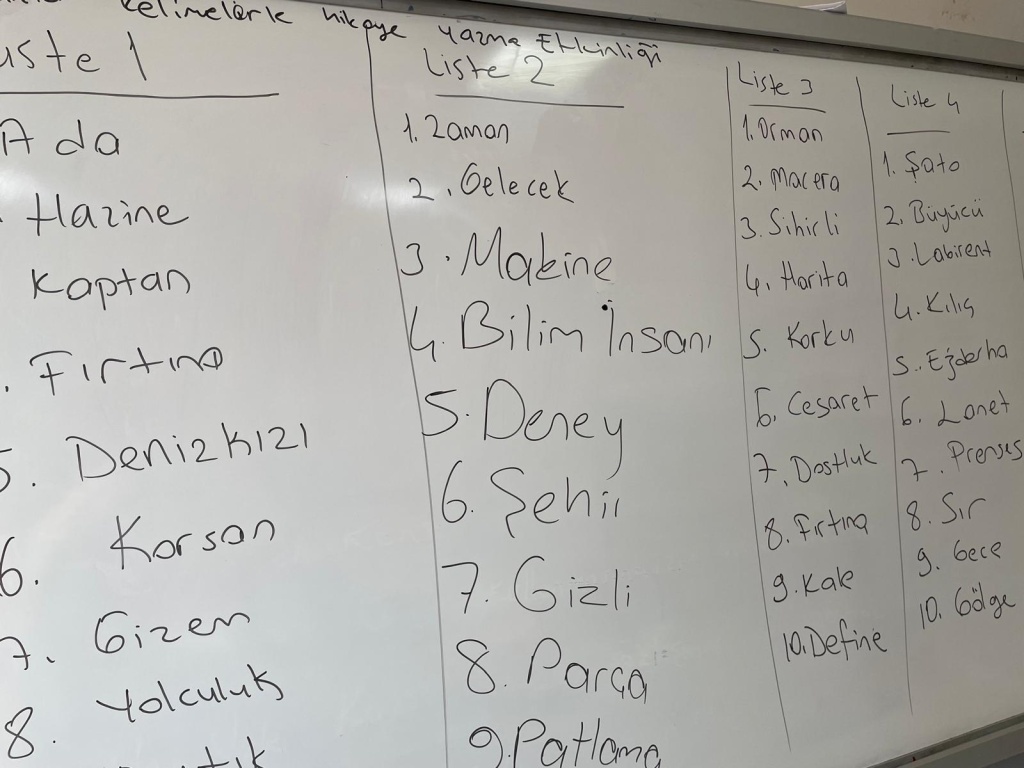 kelimelerle hikaye yazma Etkinliği
Liste 1
Ada
Hazine
Kaptan
Fırtına
5. Denizkızı
6. Korsan
7. Gizem
8. Yolculuk
Liste 2
1. Zaman
2. Gelecek
3. Makine
4. Bilim İnsanı
5. Deney
6. Şehir
7. Gizli
8. Parça
9. Patlama
Liste 3
1. Orman
2. Macera
3. Sihirli
4. Harita
5. Korku
6. Cesaret
7. Dostluk
8. Fırtına
9. Kale
10. Define
Liste 4
1. Şato
2. Büyücü
3. Labirent
4. Kılıç
5. Ejderha
6. Lanet
7. Prenses
8. Sır
9. Gece
10. Gölge